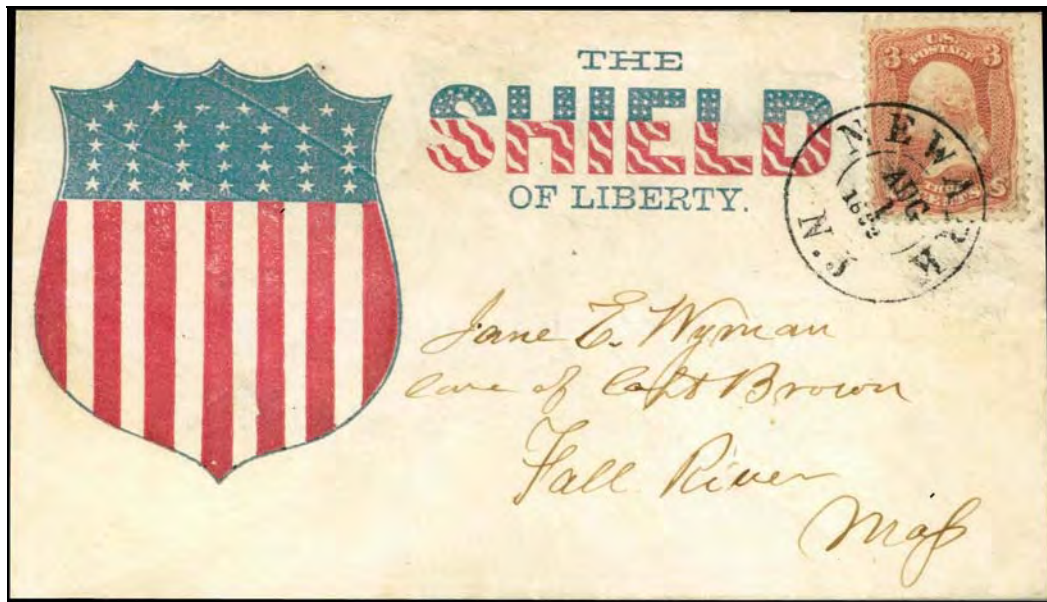 THE
SHIELD
OF LIBERTY.
U.S.
POSTAGE
3 3
THREE CENTS
NEWARK
AUG
1
N.J.
Jane E. Wyman
Care of Capt Brown
Fall River
Maſs